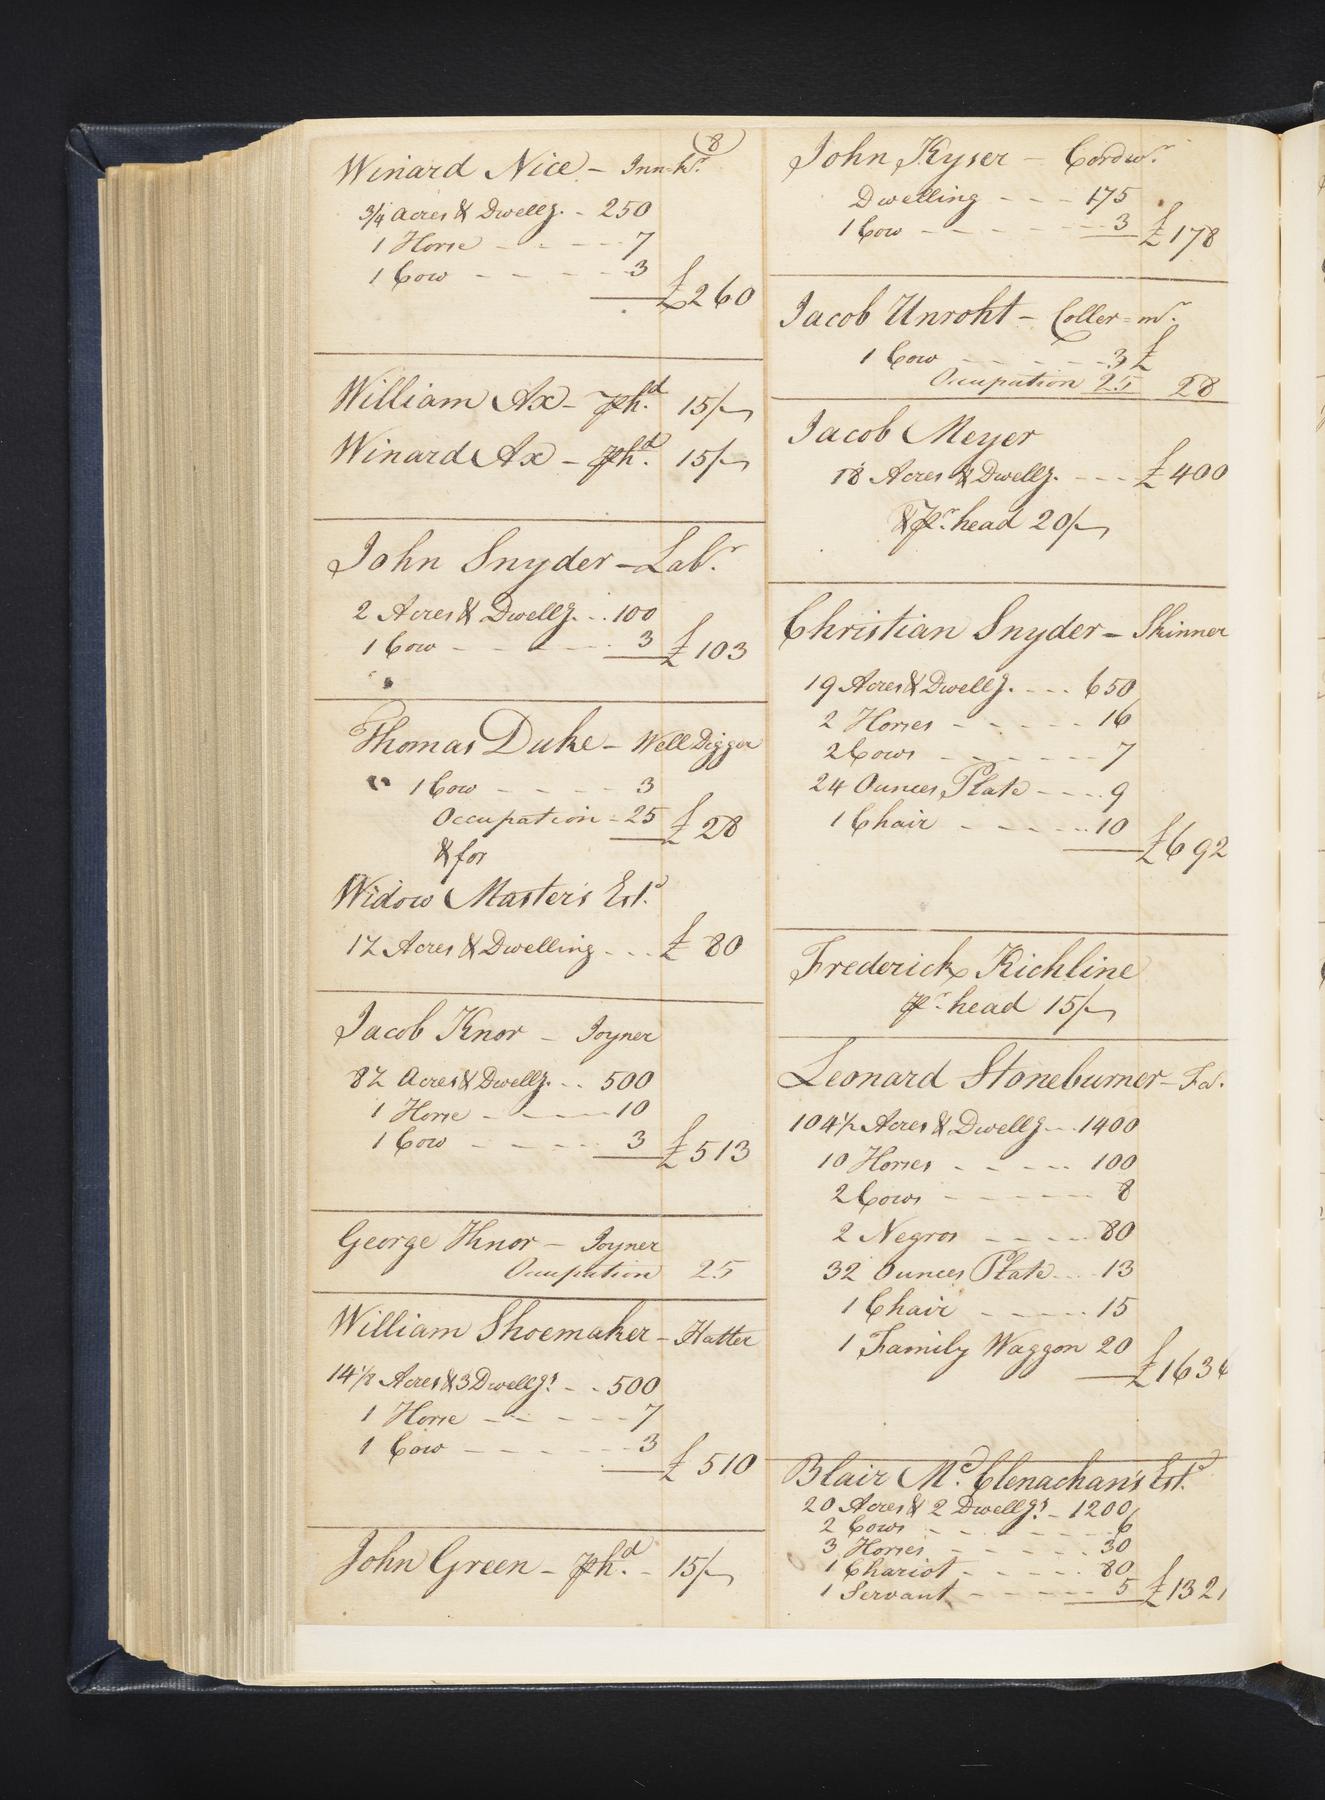 8
Winard Nice - Inn-kr.
3/4 Acres & Dwellg. - 250
1 Horse - - - - 7
1 Cow - - - - - 3
£260
William Ax - Pr hd. 15/-
Winard Ax - Pr hd. 15/-
John Snyder - Labr.
2 Acres & Dwellg. - - 100
1 Cow - - - - - 3 £103
Thomas Duke - Well Digger
" 1 Cow - - - - - 3
Occupation - 25 £28
& for
Widow Master's Estd.
12 Acres & Dwelling - - - £80
Jacob Knor - Joyner
82 Acres & Dwellg. - - 500
1 Horse - - - - 10
1 Cow - - - - - 3 £513
George Knor - Joyner
Occupation 25
William Shoemaker - Hatter
14 1/2 Acres & 3 Dwellgs. - - 500
1 Horse - - - - - 7
1 Cow - - - - - - 3
£510
John Green - Pr hd. - 15/-
John Kyser - Cordwr.
Dwelling - - - 175
1 Cow - - - - - - 3 £178
Jacob Unroht - Coller=mr.
1 Cow - - - - - - 3 £
Occupation 25 28
Jacob Meyer
18 Acres & Dwellg. - - - £400
& Pr. head 20/-
Christian Snyder - Skinner
19 Acres & Dwellg. - - - 650
2 Horses - - - - - 16
2 Cows - - - - - - 7
24 Ounces Plate - - - - 9
1 Chair - - - - - 10
£692
Frederick Richline
Pr. head 15/-
Leonard Stoneburner - Fa.
104 1/2 Acres & Dwellg - - - 1400
10 Horses - - - - - 100
2 Cows - - - - - - 8
2 Negros - - - - 80
32 Ounces Plate - - - 13
1 Chair - - - - - 15
1 Family Waggon 20
£1636
Blair Mc. Clenachan's Estd.
20 Acres & 2 Dwellgs. - 1200
2 Cows - - - - - - - 6
3 Horses - - - - - - 30
1 Chariot - - - - - 80
1 Servant - - - - - 5 £1321